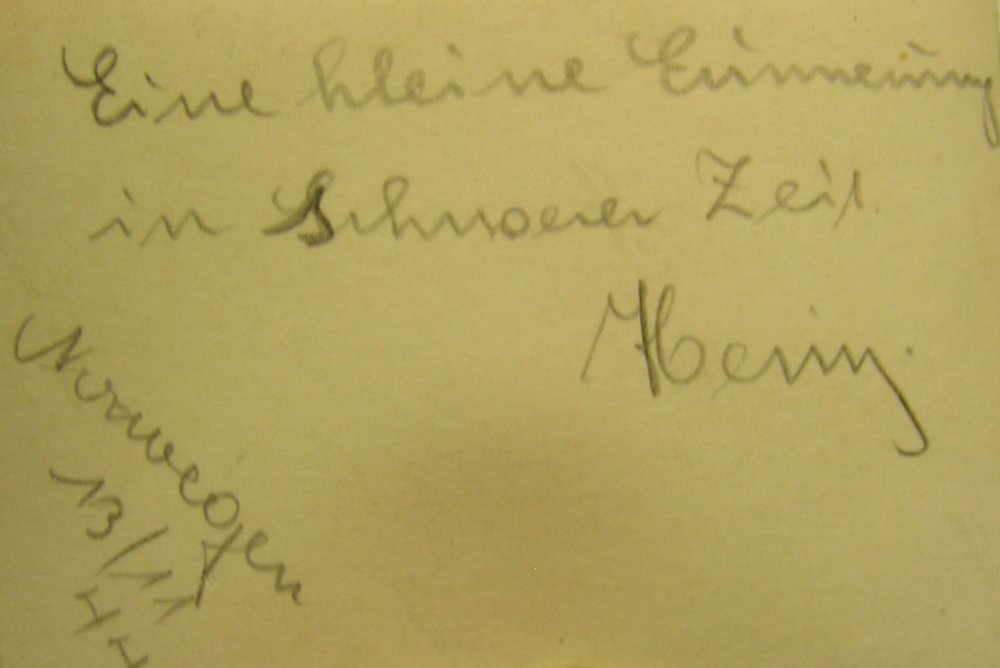 Eine kleine Erinnerung
in Schwerer Zeit.
Heinz
Norwegen
13/11
44